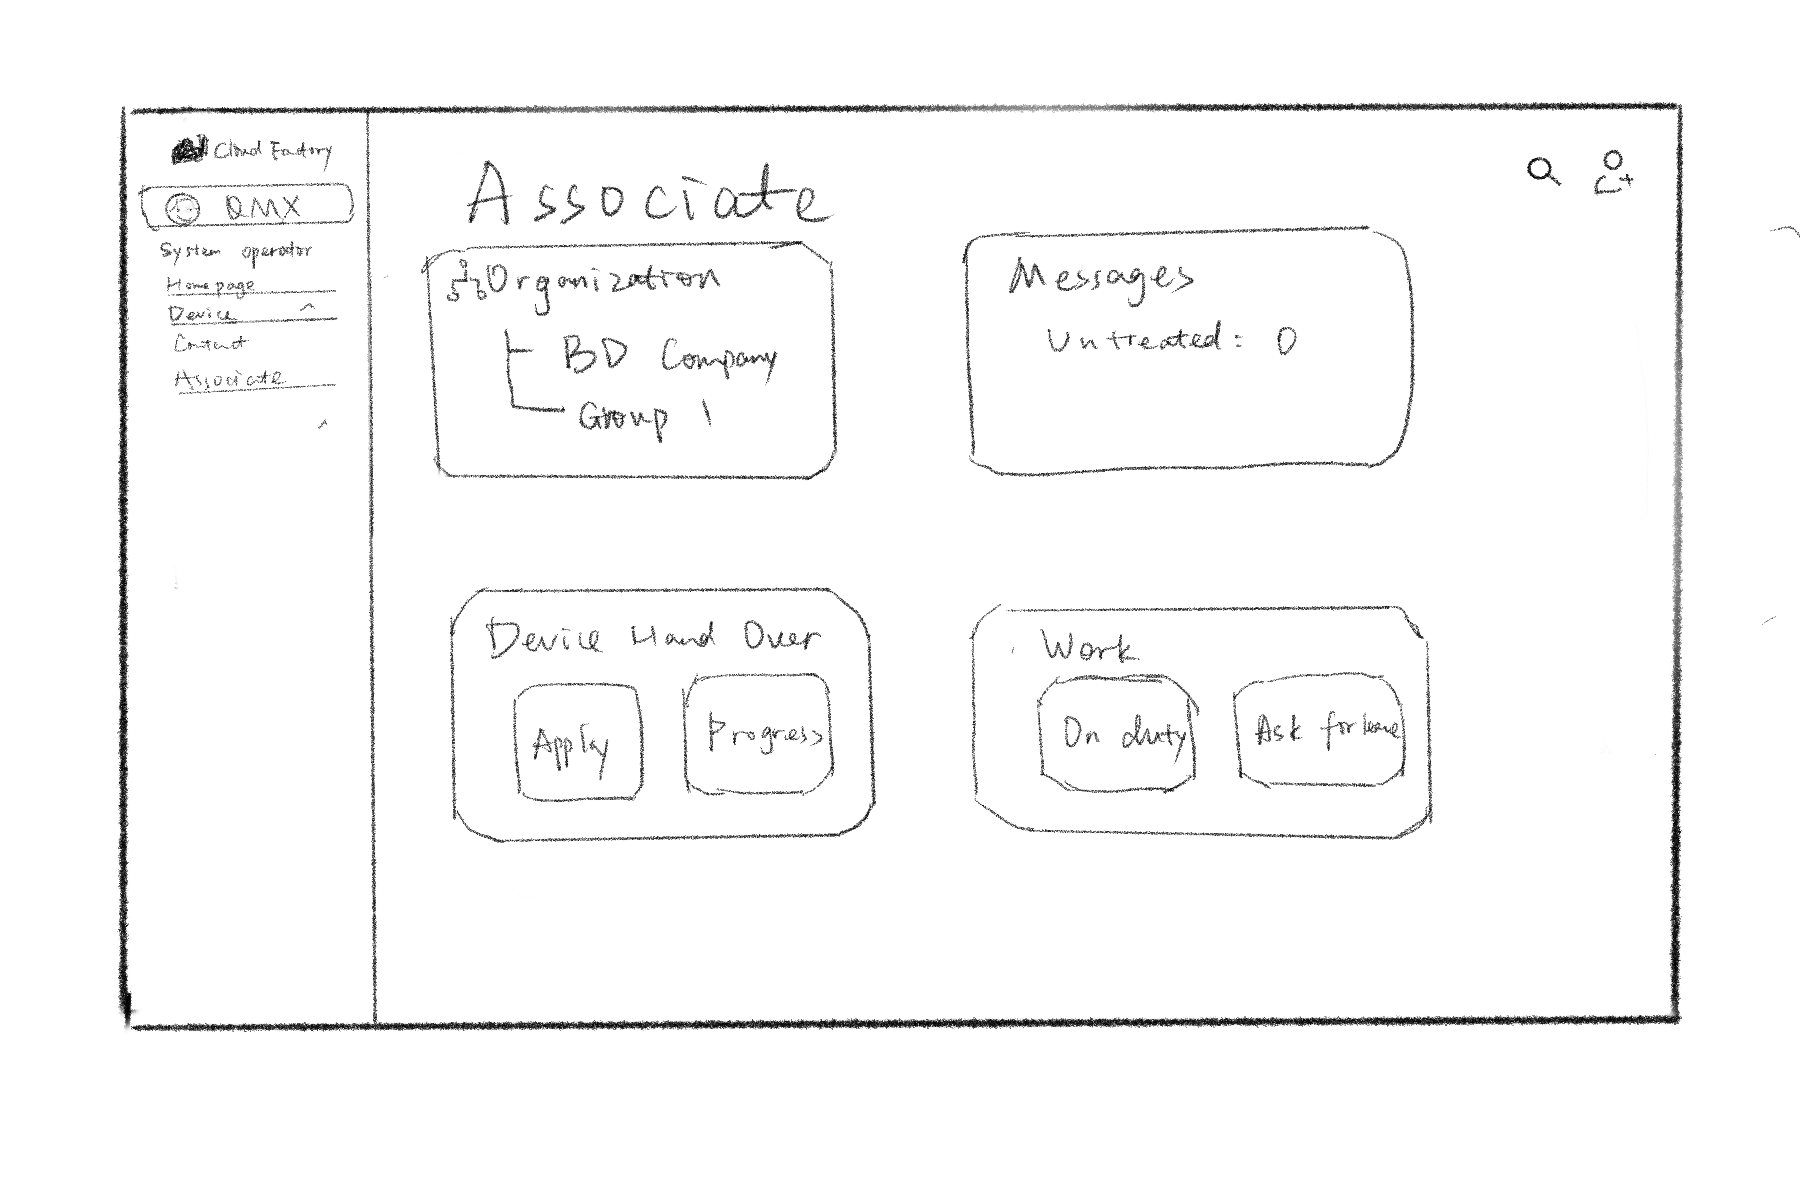 Cloud Factory
QMX
System operator
Homepage
Device
Contact
Associate
Associate
Organization
BD Company
Group 1
Messages
Untreated: 0
Device Hand Over
Apply
Progress
Work
On duty
Ask for leave